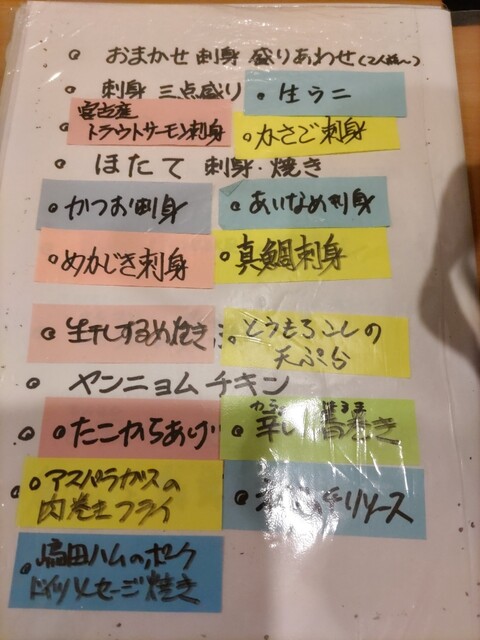 おまかせ 刺身 盛りあわせ(2人前〜)
刺身 三点盛り
生ウニ
宮古産
トラウトサーモン刺身
かさご刺身
ほたて 刺身・焼き
かつお刺身
あいなめ刺身
めかじき刺身
真鯛刺身
生干しするめ焼き
とうもろこしの
天ぷら
ヤンニョムチキン
たこからあげ
から はるま
辛い 春巻き
アスパラガスの
肉巻きフライ
チリソース
高田ハムのポーク
ドイツソーセージ焼き